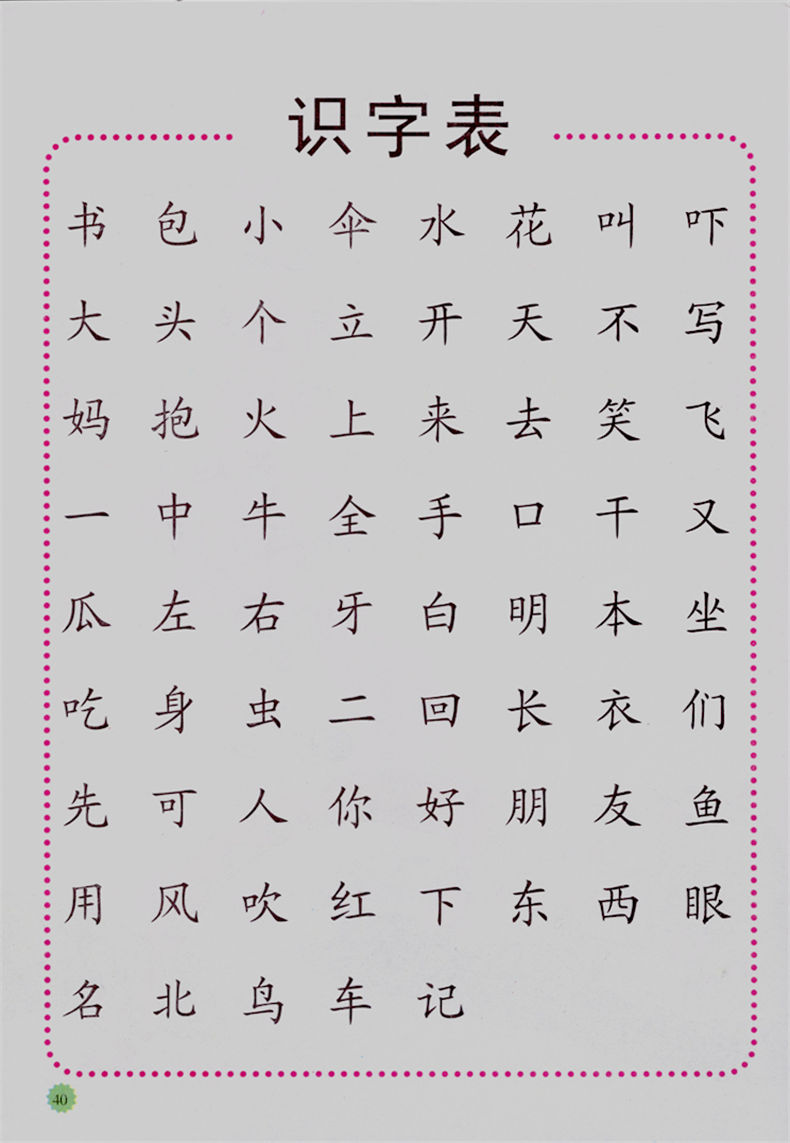 识字表
书 包 小 伞 水 花 叫 吓
大 头 个 立 开 天 不 写
妈 抱 火 上 来 去 笑 飞
一 中 牛 全 手 口 干 又
瓜 左 右 牙 白 明 本 坐
吃 身 虫 二 回 长 衣 们
先 可 人 你 好 朋 友 鱼
用 风 吹 红 下 东 西 眼
名 北 鸟 车 记
40